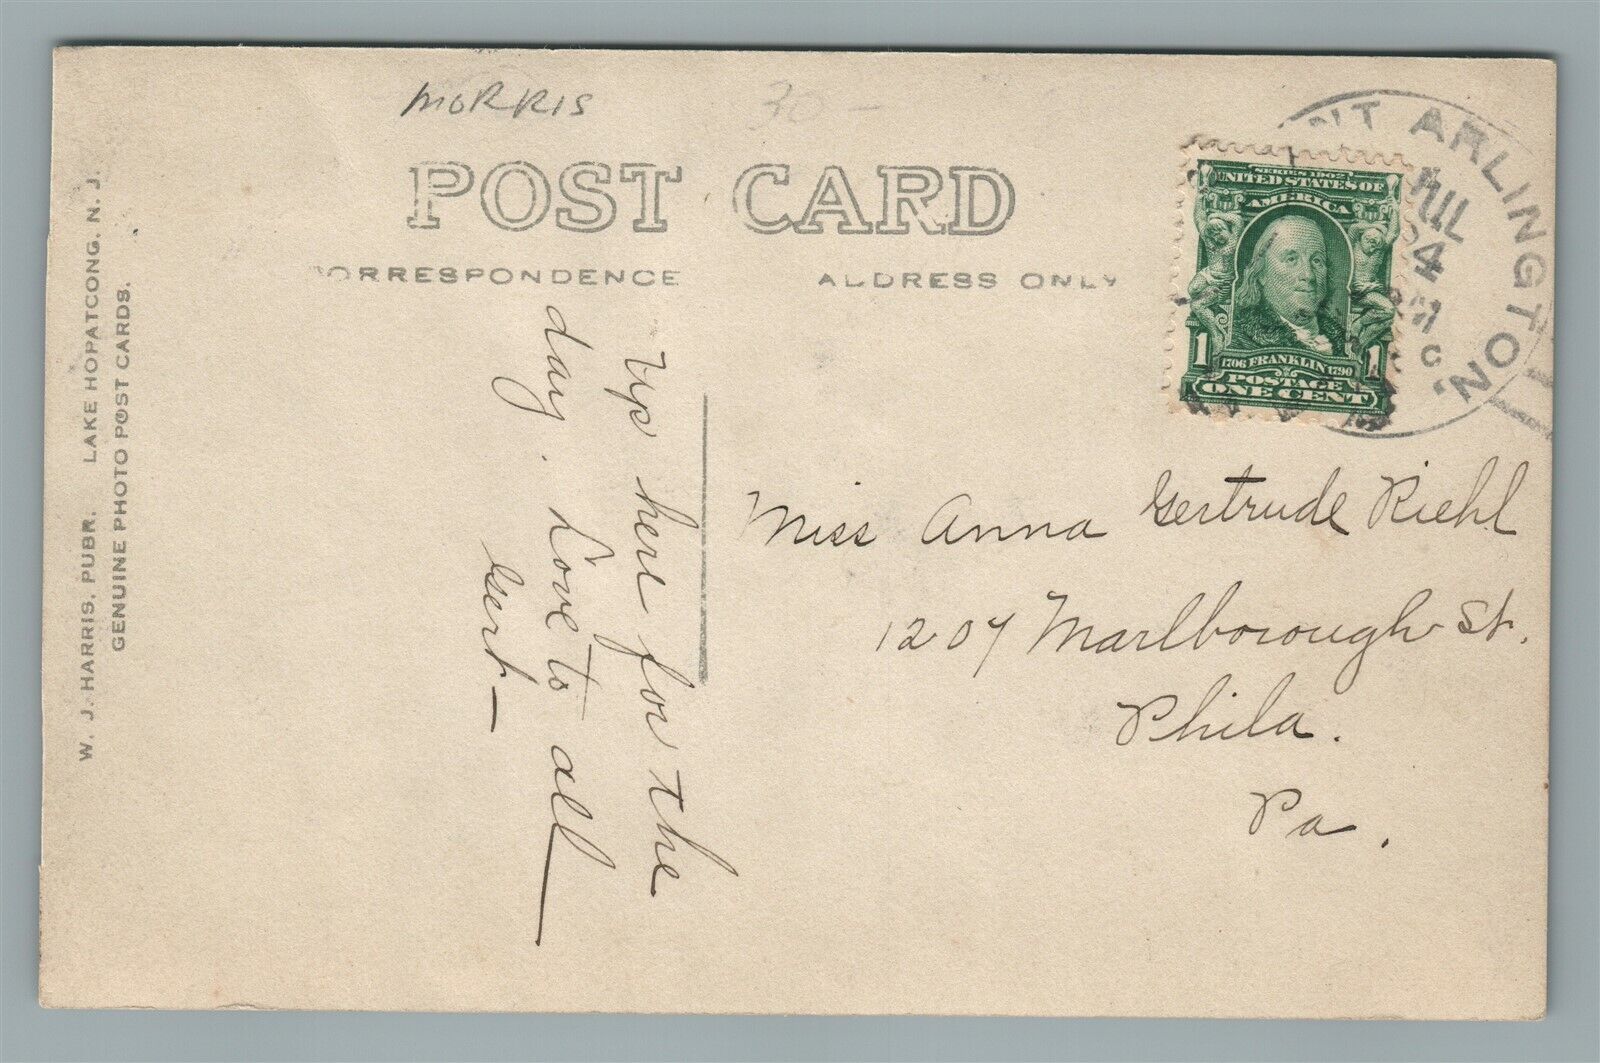 MORRIS
30-
POST CARD
CORRESPONDENCE
ADDRESS ONLY
W. J. HARRIS, PUBR. LAKE HOPATCONG, N. J.
GENUINE PHOTO POST CARDS.
Up here for the
day. Love to all
Gert-
ARLINGTON,
JUL
24
SERIES 1902
UNITED STATES OF
AMERICA
1 1
1706 FRANKLIN 1790
POSTAGE
ONE CENT
Miss Anna Gertrude Riehl
1207 Marlborough St.
Phila.
Pa.